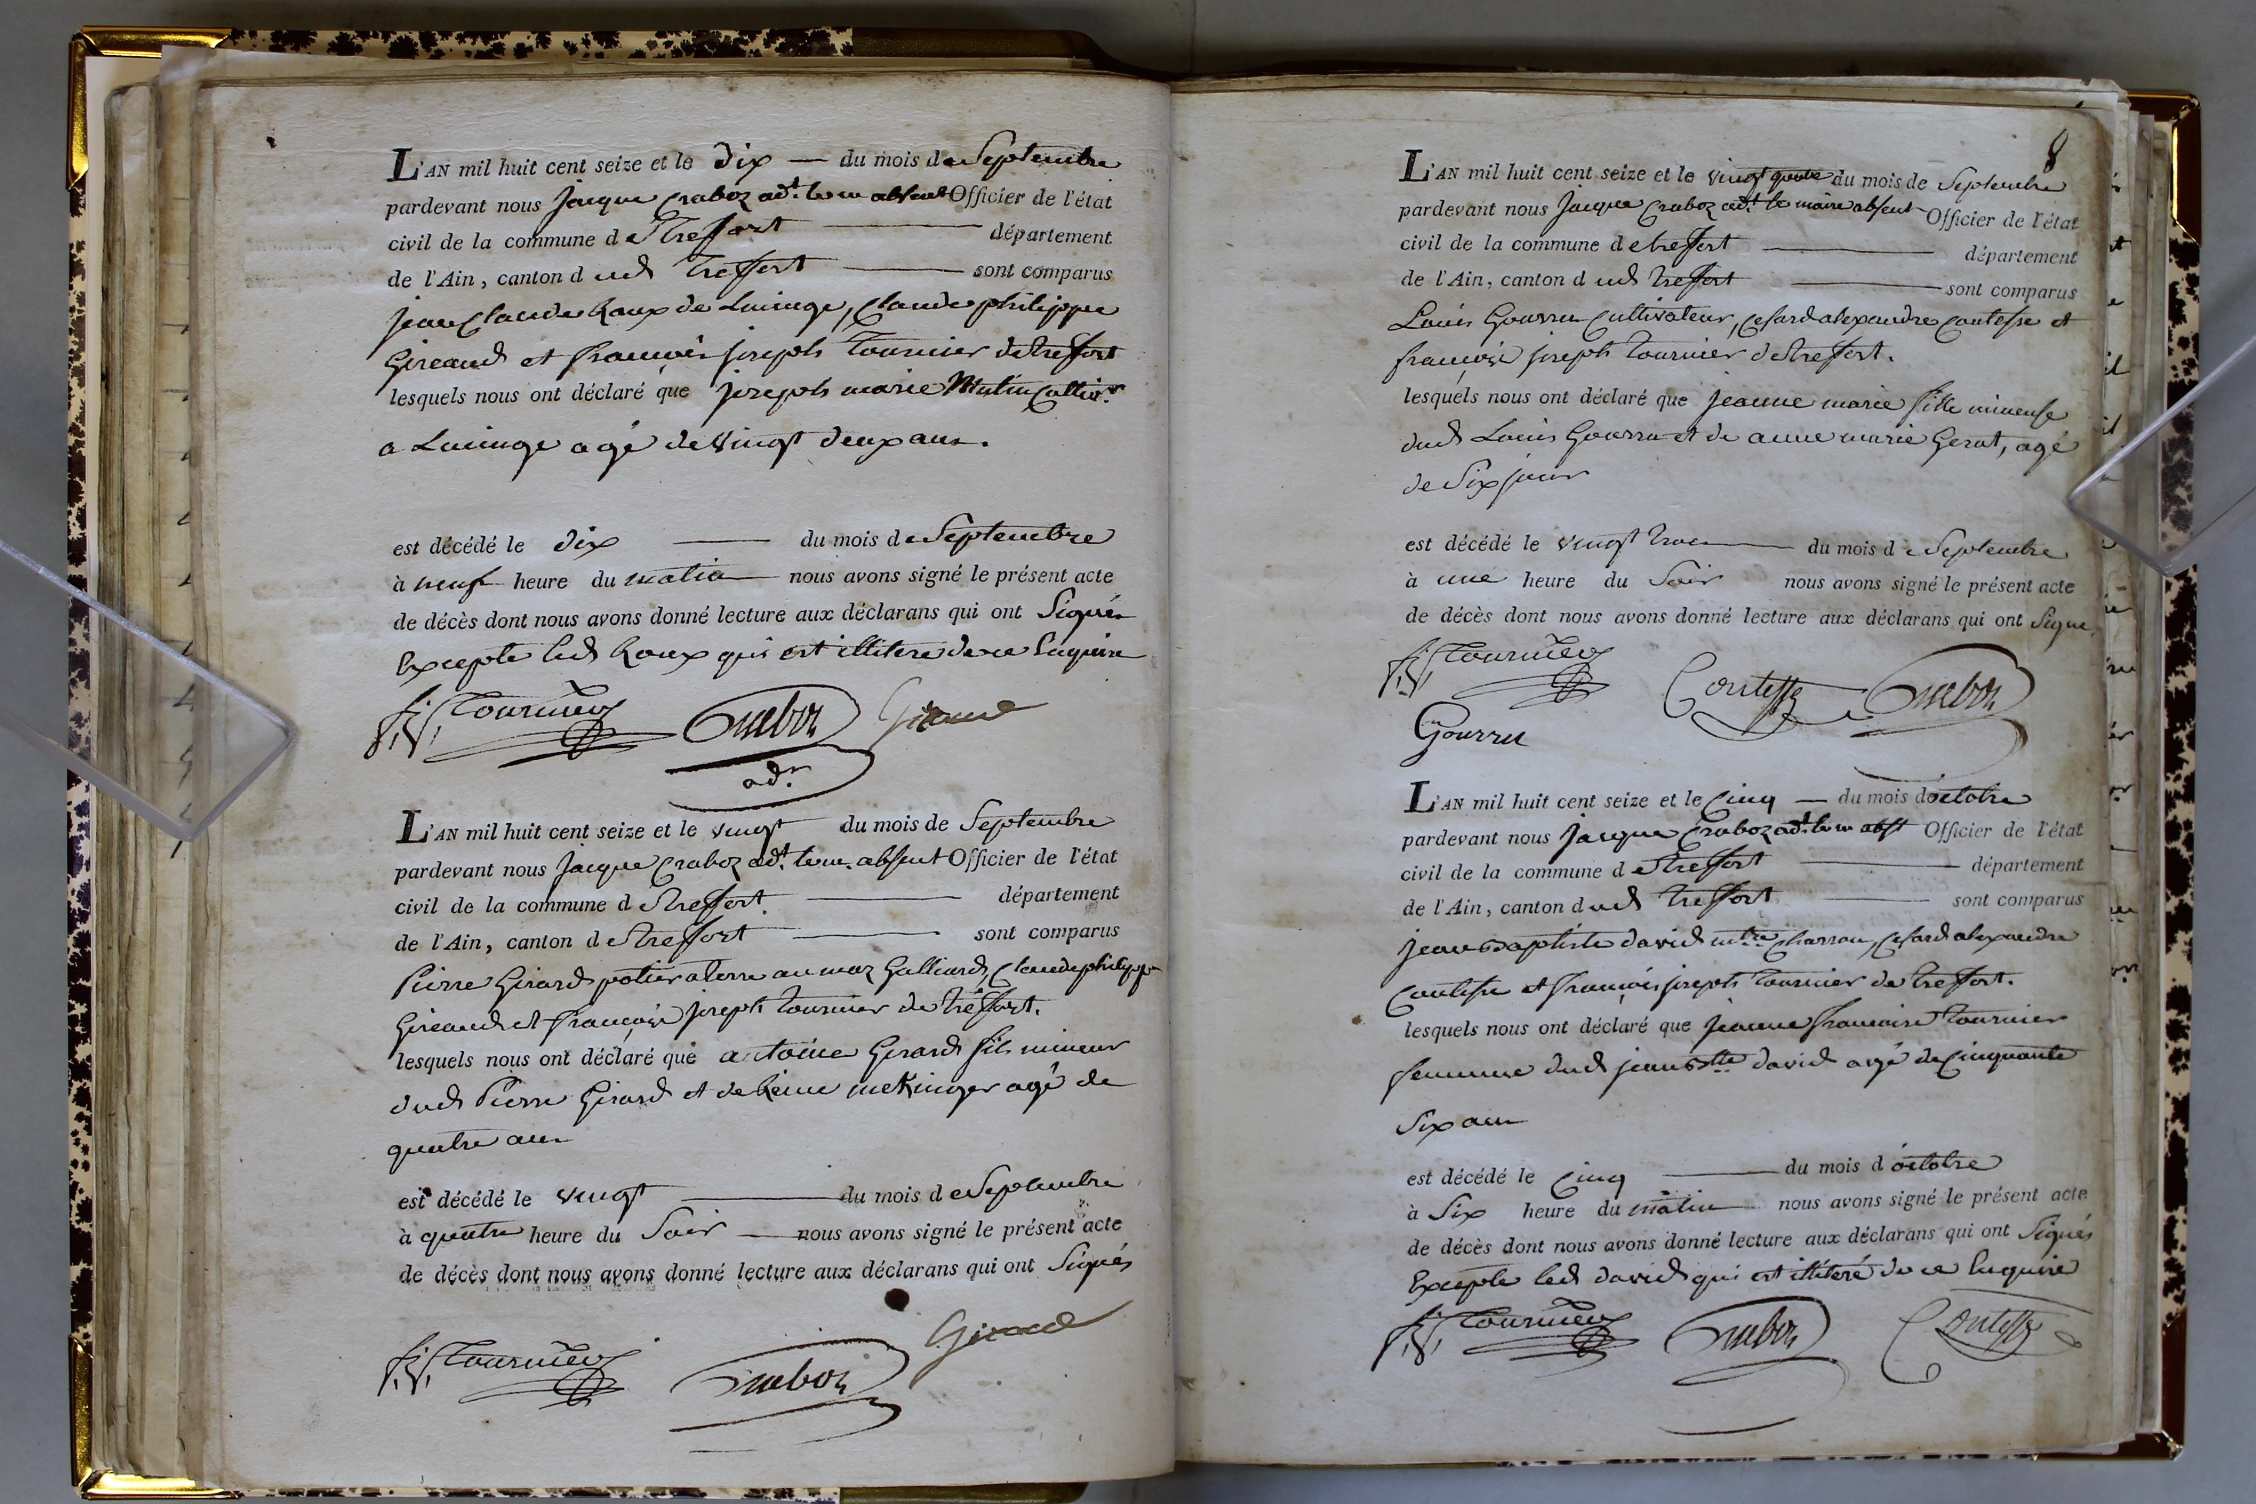 L'AN mil huit cent seize et le dix — du mois de Septembre
pardevant nous jacque Craboz adt. le m absent Officier de l'état
civil de la commune de Treffort département
de l'Ain, canton dud Treffort sont comparus
jean Claude Roux de Lucinge, Claude philippe
Gireaud et françois joseph Tournier de treffort
lesquels nous ont déclaré que joseph marie Mutin Cultivr.
a Lucinge agé de vingt deux ans.
est décédé le dix du mois de Septembre
à neuf heure du matin nous avons signé le présent acte
de décès dont nous avons donné lecture aux déclarans qui ont Signés
Excepté led Roux qui est illiteré de ce Enquire
f. j. Tournier Craboz Giraud
adt.
L'AN mil huit cent seize et le vingt du mois de Septembre
pardevant nous jacque Craboz adt. le m. absent Officier de l'état
civil de la commune de Treffort. département
de l'Ain, canton de Treffort sont comparus
Pierre Girard potier a terre au maz Galliard, Claude philippe
Gireaud et françois joseph Tournier de Tréffort.
lesquels nous ont déclaré que antoine Gerard fils mineur
dud Pierre Girard et de Reine mekinger agé de
quatre ans
est décédé le vingt du mois de Septembre
à quatre heure du Soir nous avons signé le présent acte
de décès dont nous avons donné lecture aux déclarans qui ont Signés
f. j. Tournier Craboz Giraud
8
L'AN mil huit cent seize et le vingt quatre du mois de Septembre
pardevant nous Jacque Craboz adt. le maire absent Officier de l'état
civil de la commune de treffort département
de l'Ain, canton dud treffort sont comparus
Louis Gourru Cultivateur, Cesard alexandre Contesse et
françois joseph Tournier de treffort.
lesquels nous ont déclaré que jeanne marie fille mineuse
dud Louis Gourru et de anne marie Gerat, agé
de Six jour
est décédé le vingt trois du mois de Septembre
à une heure du Soir nous avons signé le présent acte
de décès dont nous avons donné lecture aux déclarans qui ont Signe
f. j. Tournier Contesse Craboz
Gourru
L'AN mil huit cent seize et le Cinq — du mois d'octobre
pardevant nous jacque Craboz adt. le m abst Officier de l'état
civil de la commune de treffort département
de l'Ain, canton dud Treffort sont comparus
jean Baptiste david mtre Charron, Cesard alexandre
Contesse et françois joseph Tournier de treffort.
lesquels nous ont déclaré que jeanne francoise Tournier
femme dud jean Btte david agé de Cinquante
Six ans
est décédé le Cinq du mois d'octobre
à Six heure du matin nous avons signé le présent acte
de décès dont nous avons donné lecture aux déclarans qui ont Signés
Excepté led david qui est illiteré de ce Enquire
f. j. Tournier Craboz Contesse